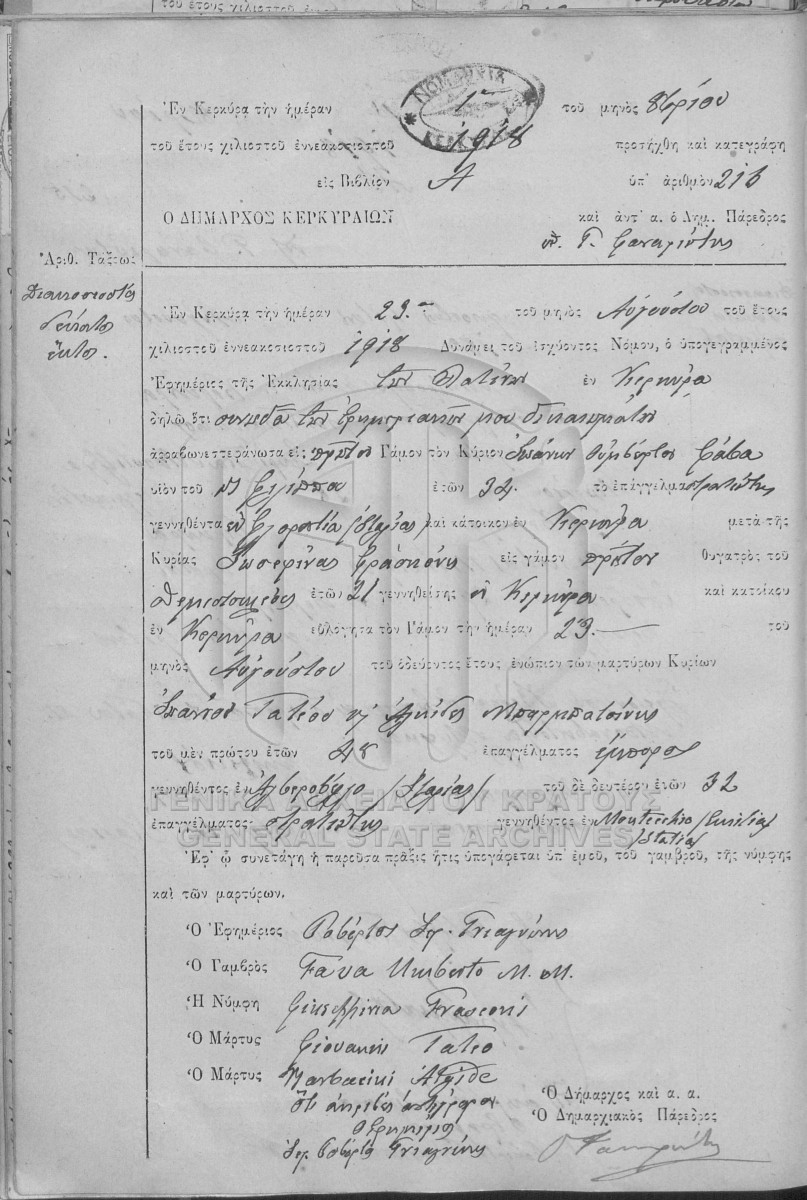 τοῦ ἔτους χιλιοστοῦ
ΝΟΜΑΡΧΙΑ
ΚΕΡΚΥΡΑΣ
Ἐν Κερκύρᾳ τὴν ἡμέραν 1ην τοῦ μηνὸς 8βρίου
τοῦ ἔτους χιλιοστοῦ ἐννεακοσιοστοῦ 1918 προσήχθη καὶ κατεγράφη
εἰς Βιβλίον Α ὑπ' ἀριθμὸν 216
Ο ΔΗΜΑΡΧΟΣ ΚΕΡΚΥΡΑΙΩΝ καὶ ἀντ' α. ὁ Δημ. Πάρεδρος
Ἀριθ. Τάξεως
Διακοσιοστὸς
δέκατος
ἕκτος.
Ἐν Κερκύρᾳ τὴν ἡμέραν 23ην τοῦ μηνὸς Αὐγούστου τοῦ ἔτους
χιλιοστοῦ ἐννεακοσιοστοῦ 1918 Δυνάμει τοῦ ἰσχύοντος Νόμου, ὁ ὑπογεγραμμένος
Ἐφημέριος τῆς Ἐκκλησίας τῶν Λατίνων ἐν Κερκύρᾳ
δηλῶ ὅτι συνεπείᾳ τῶν ἐφημεριακῶν μου δικαιωμάτων
ἀρραβωνεστεράνωσα εἰς πρῶτον Γάμον τὸν Κύριον Οὐμβέρτον Φάβα
υἱὸν τοῦ Φιλίππου ἐτῶν 32 τὸ ἐπάγγελμα στρατιώτης
γεννηθέντα ἐν (Ἰταλίας) καὶ κάτοικον ἐν Κερκύρᾳ μετὰ τῆς
Κυρίας Ἰωσεφίνας Φρασκόνη εἰς γάμον πρῶτον θυγατρὸς τοῦ
Θεμιστοκλέους ἐτῶν 21 γεννηθείσης ἐν Κερκύρᾳ καὶ κατοίκου
ἐν Κερκύρᾳ εὐλόγησα τὸν Γάμον τὴν ἡμέραν 23.— τοῦ
μηνὸς Αὐγούστου τοῦ ὁδεύοντος ἔτους ἐνώπιον τῶν μαρτύρων Κυρίων
Ἰωάννου Τατέου
τοῦ μὲν πρώτου ἐτῶν 48 ἐπαγγέλματος ἔμπορος
γεννηθέντος ἐν Ἀλβεροβέλλο (Ἰταλίας) τοῦ δὲ δευτέρου ἐτῶν 32
ΓΕΝΙΚΑ ΑΡΧΕΙΑ ΤΟΥ ΚΡΑΤΟΥΣ
ἐπαγγέλματος στρατιώτης γεννηθέντος ἐν Montecchio (Emilia)
GENERAL STATE ARCHIVES
(Italia)
Ἐφ' ᾧ συνετάγη ἡ παροῦσα πρᾶξις ἥτις ὑπογράφεται ὑπ' ἐμοῦ, τοῦ γαμβροῦ, τῆς νύμφης
καὶ τῶν μαρτύρων.
Ὁ Ἐφημέριος Ροβέρτος
Ὁ Γαμβρὸς Fava Umberto M. M.
Ἡ Νύμφη Giuseppina Frasconi
Ὁ Μάρτυς Giovanni Tateo
Ὁ Μάρτυς Barbacini Alcide
Ὅτι ἀκριβὲς ἀντίγραφον
Ὁ Ἐφημέριος
Ὁ Δήμαρχος καὶ α. α.
Ὁ Δημαρχιακὸς Πάρεδρος